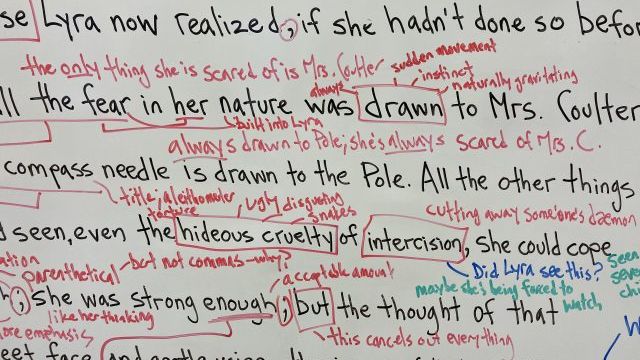 se Lyra now realized, if she hadn't done so befor
the only thing she is scared of is Mrs. Coulter
sudden movement
instinct
always
naturally gravitating
ll the fear in her nature was drawn to Mrs. Coulter
built into Lyra
always drawn to Pole; she's always scared of Mrs. C.
compass needle is drawn to the Pole. All the other things
title; alethiometer
torture
ugly disgusting
snakes
cutting away someone's daemon
d seen, even the hideous cruelty of intercision, she could cope
ation
parenthetical
but not commas - why?
acceptable amount
Did Lyra see this?
maybe she's being forced to watch
Seen
seve
chi
h; she was strong enough; but the thought of that
like her thinking
ore emphasis
this cancels out everything
W
eet face and gentle voice